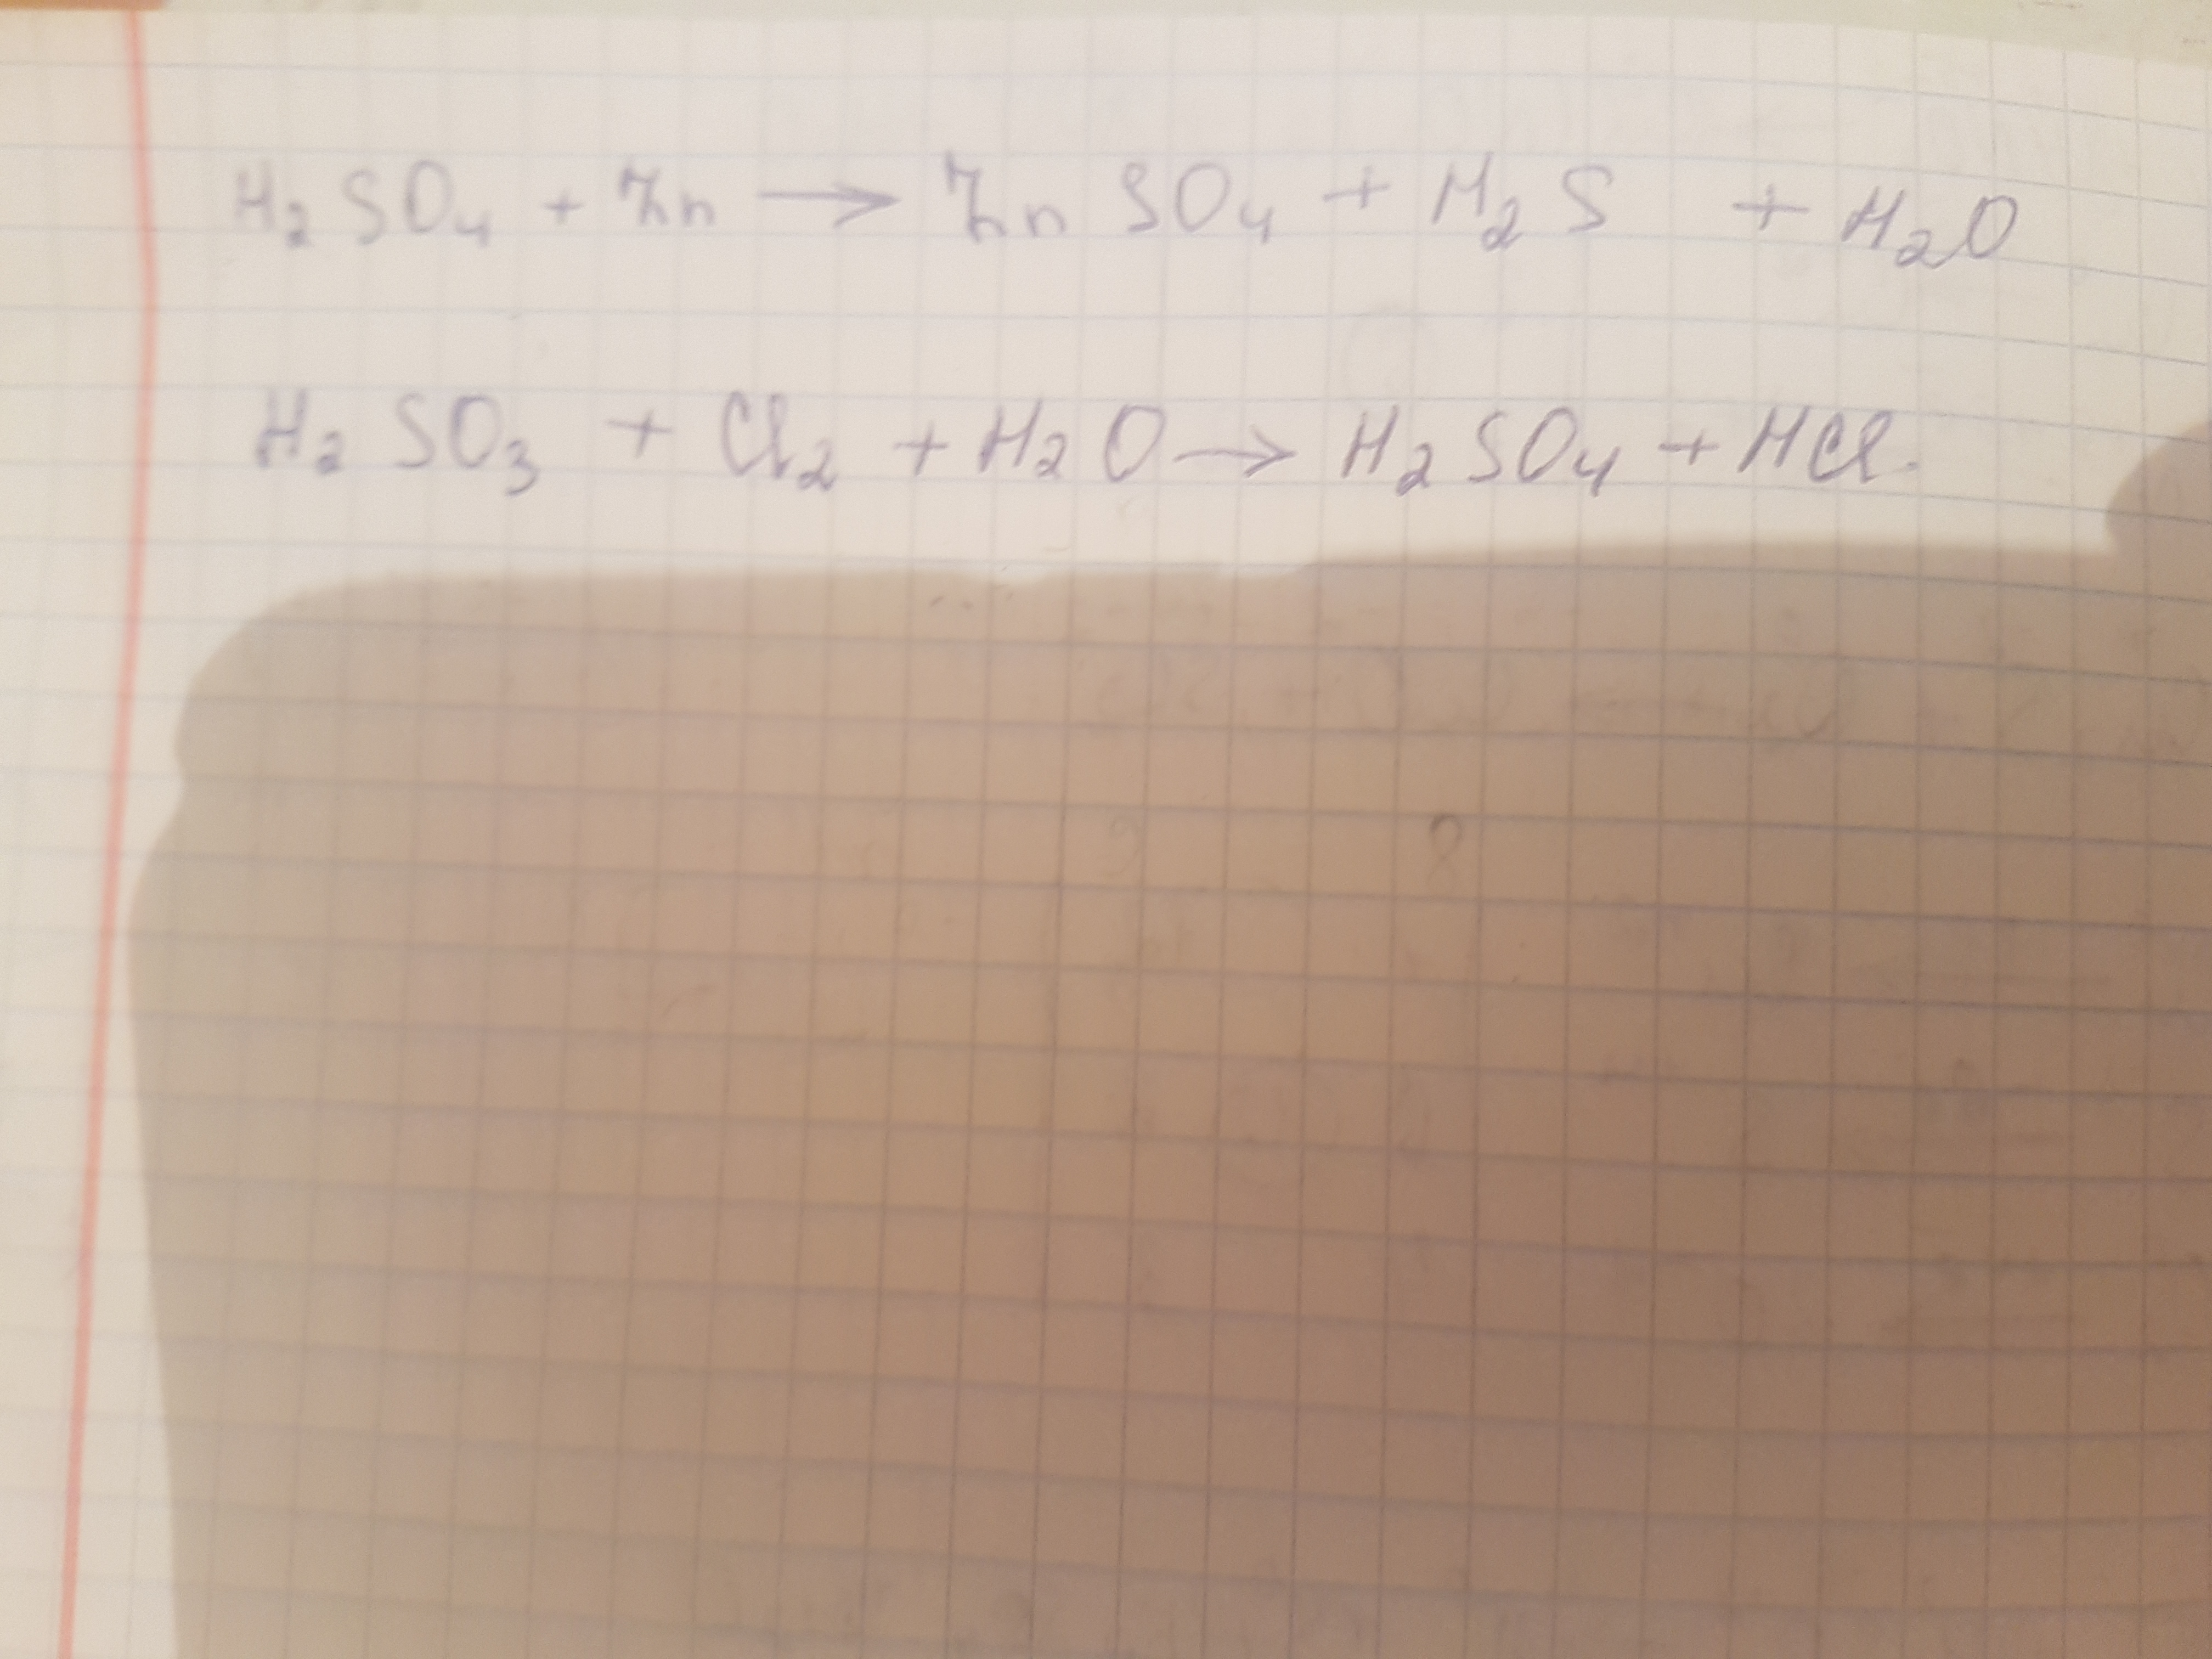 H₂SO₄ + Zn → ZnSO₄ + H₂S + H₂O
H₂SO₃ + Cl₂ + H₂O → H₂SO₄ + HCl.